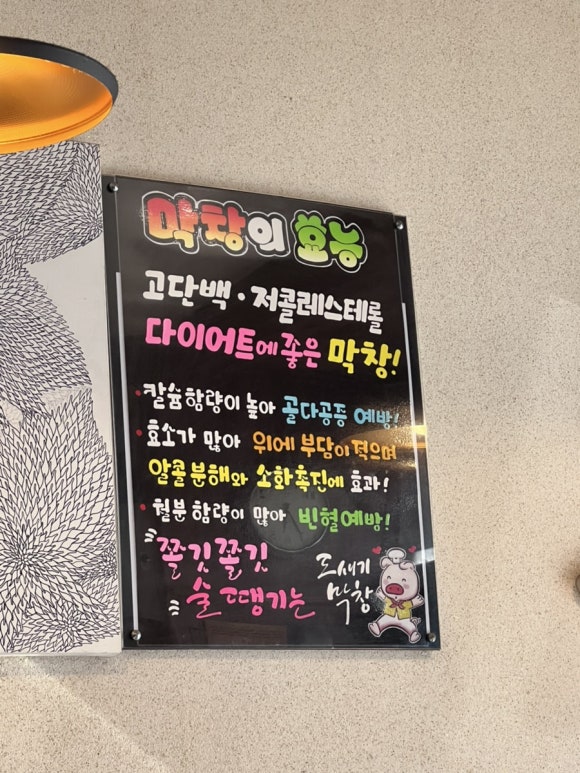 막창의 효능
고단백·저콜레스테롤
다이어트에 좋은 막창!
칼슘함량이 높아 골다공증 예방!
효소가 많아 위에 부담이 적으며
알콜분해와 소화촉진에 효과!
철분함량이 많아 빈혈예방!
쫄깃쫄깃
술 땡기는
도새기
막창